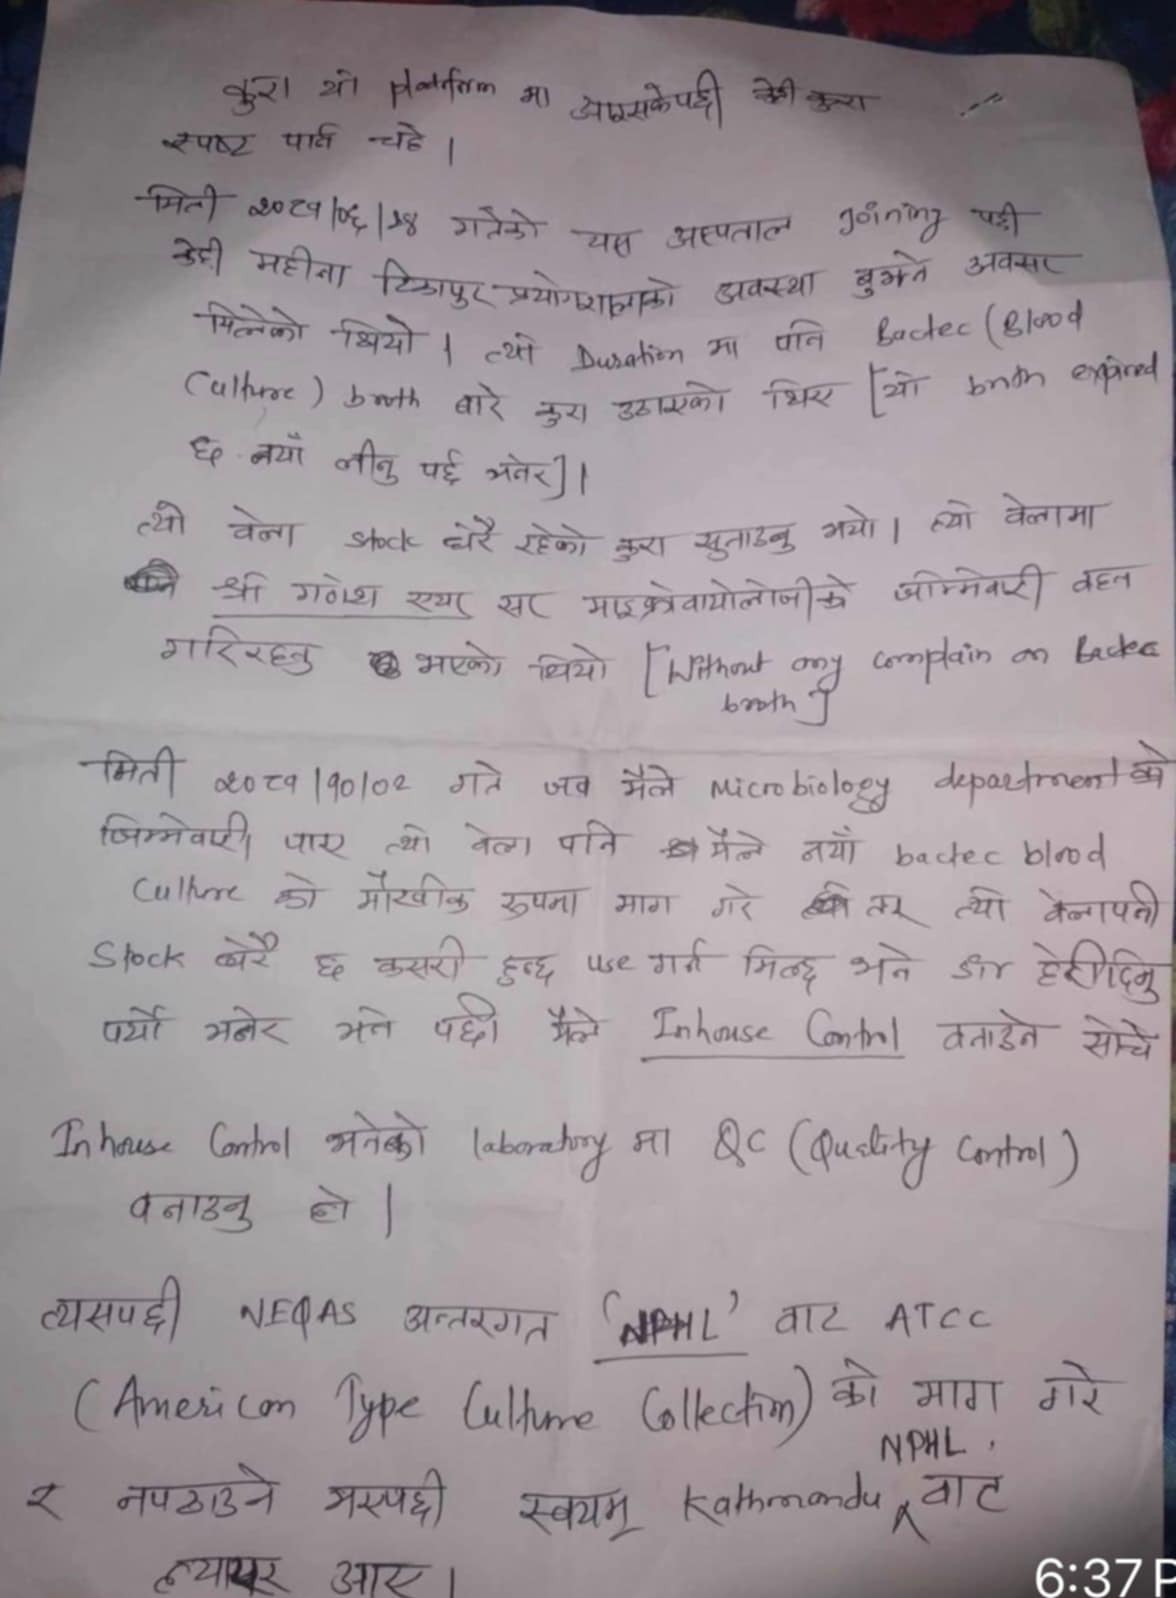 कुरा यो platform मा आइसकेपछी केही कुरा
स्पष्ट पार्न चहे ।
मिती २०८१/०६/२४ गतेको यस अस्पताल Joining पछी
केही महीना टिकापुर प्रयोगशालाको अवस्था बुझ्ने अवसर
मिलेको थियो । त्यो Duration मा पनि Bactec (Blood
Culture) broth बारे कुरा उठाएको थिए [यो broth expired
छ नयाँ लीनु पर्छ भनेर] ।
त्यो वेला stock धेरै रहेको कुरा सुनाउनु भयो । त्यो वेलामा
श्री गणेश सर माइक्रोवायोलोजीको जीम्मेवारी वहन
गरिरहनु भएको थियो [Without any complain on Bactec
broth]
मिती २०८१/१०/०२ गते जव मैले Microbiology department को
जिम्मेवारी पाए त्यो वेला पनि मैले नयाँ bactec blood
Culture को मौखीक रुपमा माग गरे तर त्यो वेलापनी
Stock धेरै छ कसरी हुन्छ use गर्न मिल्छ भने हेरीदिनु
पर्यो भनेर भने पछी मैले Inhouse Control वनाउने सोचे
Inhouse Control भनेको laboratory मा QC (Quality Control)
वनाउनु हो |
त्यसपछी NEQAS अन्तरगत 'NPHL' वाट ATCC
(American Type Culture Collection) को माग गरे
NPHL .
र नपठाउने भएपछी स्वयम् Kathmandu वाट
ल्याएर आए ।
6:37 P